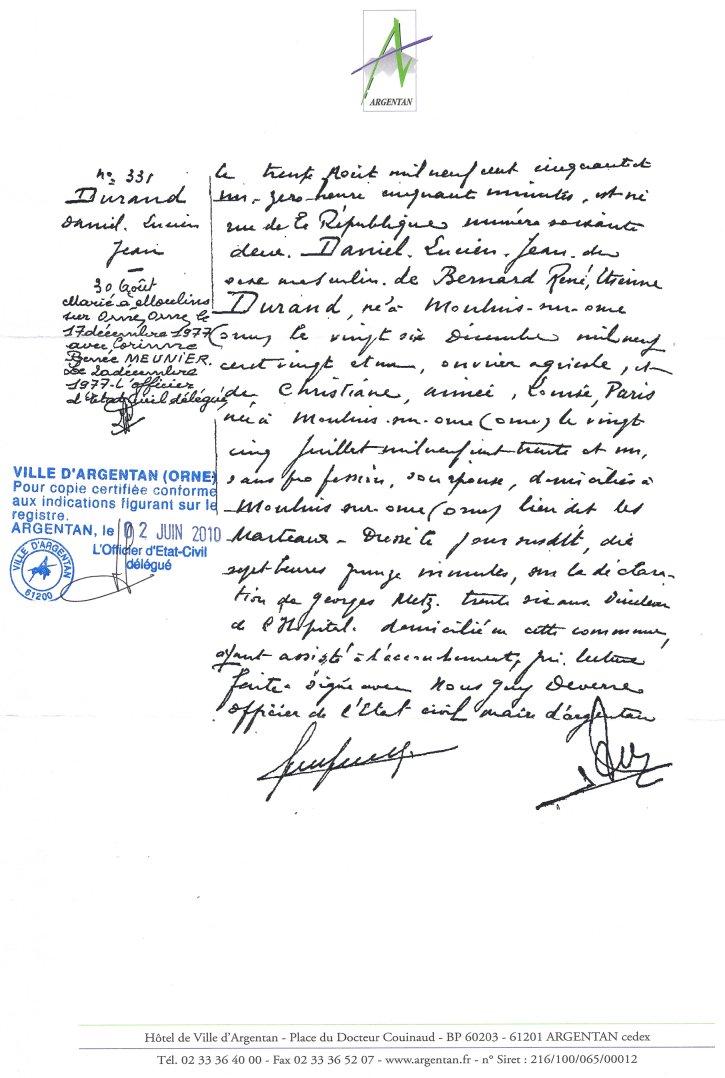 ARGENTAN
n° 331
Durand
Daniel. Lucien
Jean
30 Août
Marié à Moulins
sur Orne, Orne le
17 décembre 1977
avec Corinne
Renée MEUNIER.
Le 20 décembre
1977 - L'officier
d'Etat Civil délégué,
VILLE D'ARGENTAN (ORNE)
Pour copie certifiée conforme
aux indications figurant sur le
registre.
ARGENTAN, le 02 JUIN 2010
L'Officier d'Etat-Civil
délégué
VILLE D'ARGENTAN
61200
Le trente Août mil neuf cent cinquante et
un - zéro heure cinquante minutes, est né
rue de la République numéro soixante
deux. Daniel. Lucien. Jean. du
sexe masculin. de Bernard René, Etienne
Durand, né à Moulins-sur-orne
(orne) le vingt six Décembre mil neuf
cent vingt et un, ouvrier agricole, et
de Christiane, aimée, Louise, Paris
née à Moulins-sur-orne (orne) le vingt
cinq Juillet mil neuf cent trente et un,
sans profession, son épouse, domiciliés à
Moulins-sur-orne (orne) lieu dit les
Marteaux - Dressé le jour susdit, dix
sept heures quinze minutes, sur la déclara-
tion de Georges Metz. trente six ans Directeur
de l'Hôpital. domicilié en cette commune,
ayant assisté à l'accouchement, qui. lecture
faite a signé avec Nous Guy Deverre
officier de l'Etat civil maire d'argentan
Hôtel de Ville d'Argentan - Place du Docteur Couinaud - BP 60203 - 61201 ARGENTAN cedex
Tél. 02 33 36 40 00 - Fax 02 33 36 52 07 - www.argentan.fr - n° Siret : 216/100/065/00012